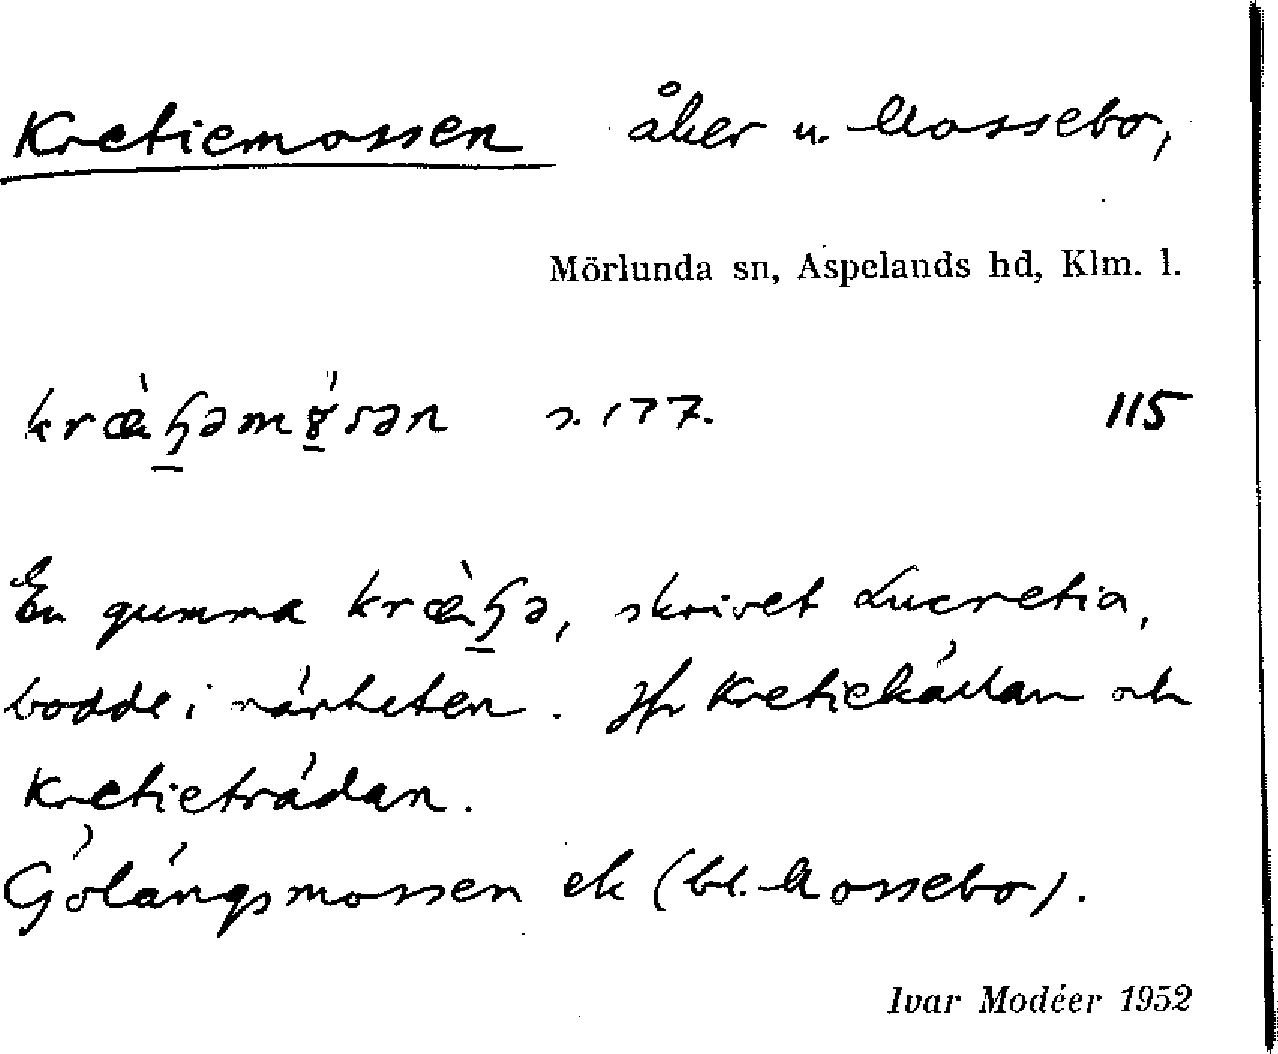 Kretiemossen åker u. Mossebo,
Mörlunda sn, Aspelands hd, Klm. l.
s. 177. 115
En gumma skrivet Lucretia,
bodde i närheten. Jfr Kretiekällan och
Kretieträdan.
Gölängsmossen ek (bl. Mossebo).
Ivar Modéer 1952